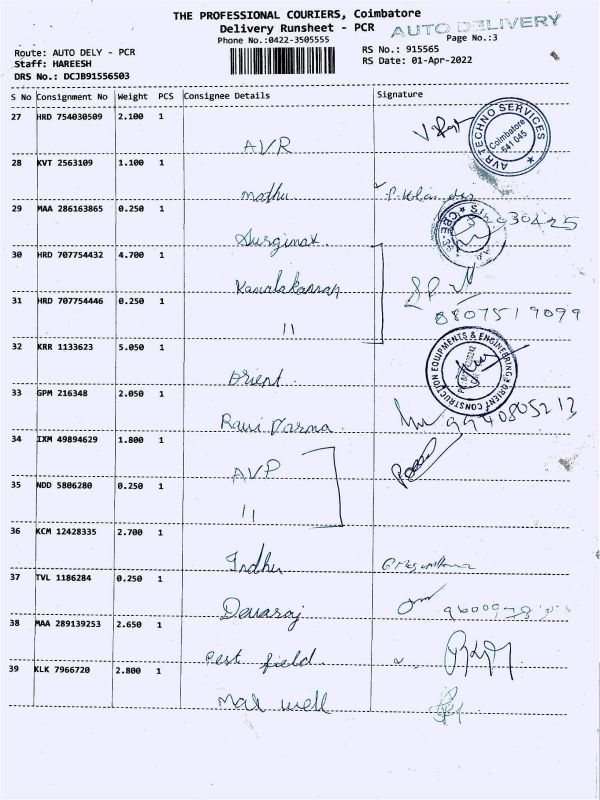 THE PROFESSIONAL COURIERS, Coimbatore
AUTO DELIVERY
Delivery Runsheet - PCR
Phone No.:0422-3505555
Page No.:3
Route: AUTO DELY - PCR
RS No.: 915565
Staff: HAREESH
RS Date: 01-Apr-2022
DRS No.: DCJB91556503
S No Consignment No Weight PCS Consignee Details Signature
27 HRD 754030509 2.100 1
AVR
AVR TECHNO SERVICES
Coimbatore
641 045
28 KVT 2563109 1.100 1
Madhu
29 MAA 286163865 0.250 1
Surginax
30 HRD 707754432 4.700 1
Kamalakannan
31 HRD 707754446 0.250 1
8807519099
11
32 KRR 1133623 5.050 1
Orient
ORIENT CONSTRUCTION EQUIPMENTS & ENGINEERING
33 GPM 216348 2.050 1
Ravi Varma
9940805213
34 IXM 49894629 1.800 1
AVP
35 NDD 5806280 0.250 1
11
36 KCM 12428335 2.700 1
Indhu
37 TVL 1186284 0.250 1
Devaraj
38 MAA 289139253 2.650 1
Pest field
39 KLK 7966720 2.800 1
Max well